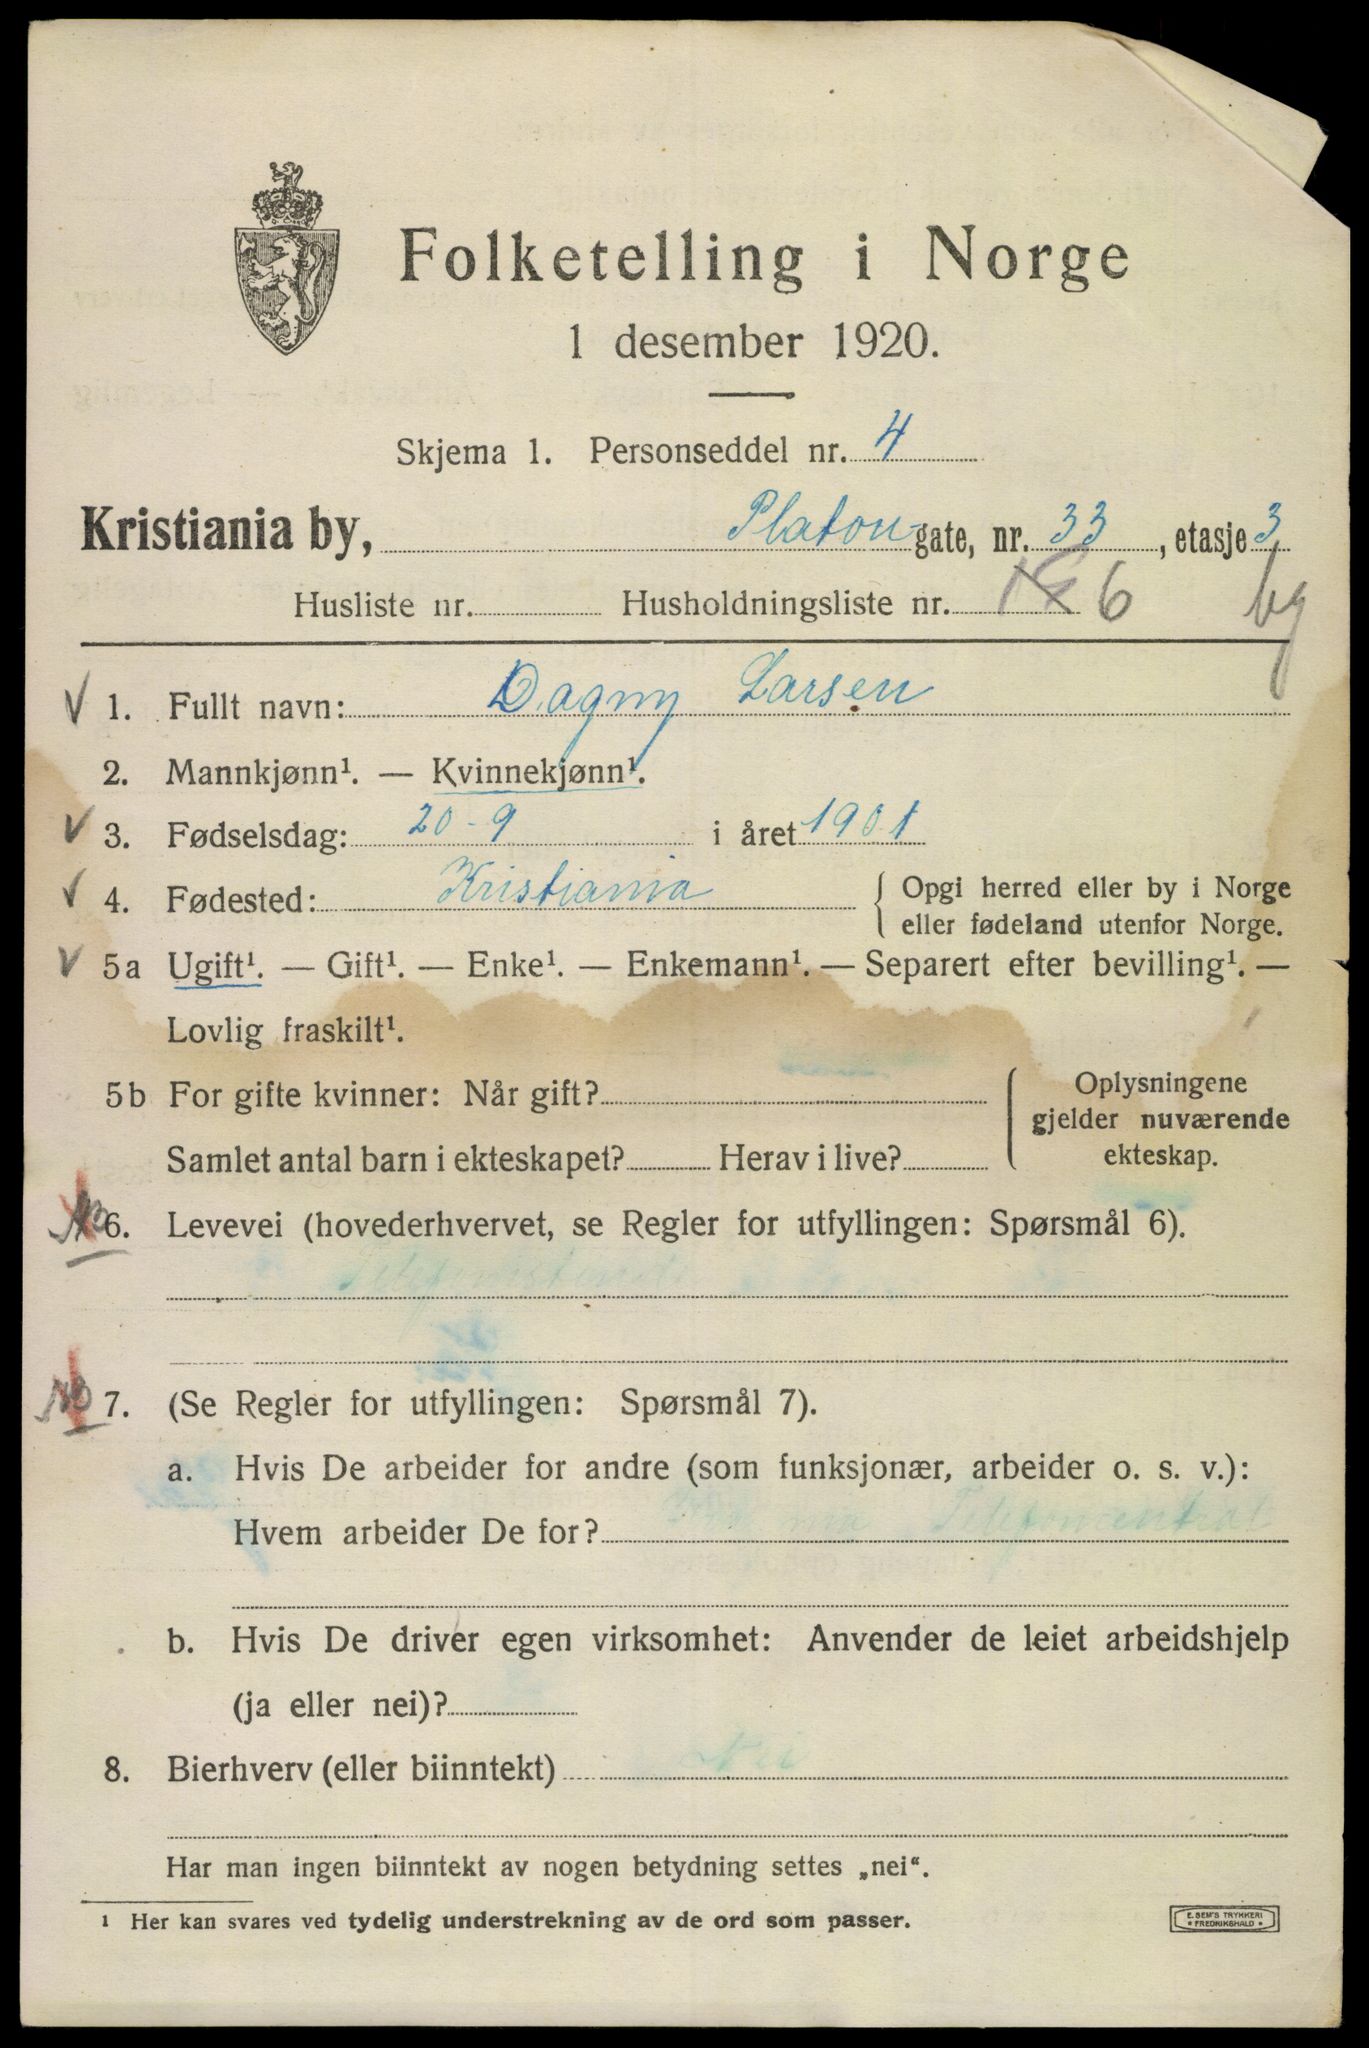 Folketelling i Norge
1 desember 1920.
Skjema 1. Personseddel nr. 4
Kristiania by, Platou-gate, nr. 33, etasje 3
Husliste nr. Husholdningsliste nr. 6 bg
1. Fullt navn: Dagny Larsen
2. Mannkjønn¹. — Kvinnekjønn¹.
3. Fødselsdag: 20-9 i året 1901
4. Fødested: Kristiania { Opgi herred eller by i Norge
eller fødeland utenfor Norge.
5a Ugift¹. — Gift¹. — Enke¹. — Enkemann¹. — Separert efter bevilling¹. —
Lovlig fraskilt¹.
5b For gifte kvinner: Når gift? { Oplysningene
gjelder nuværende
Samlet antal barn i ekteskapet? Herav i live? ekteskap.
NB 6. Levevei (hovederhvervet, se Regler for utfyllingen: Spørsmål 6).
NB 7. (Se Regler for utfyllingen: Spørsmål 7).
a. Hvis De arbeider for andre (som funksjonær, arbeider o. s. v.):
Hvem arbeider De for? Telefoncentral
b. Hvis De driver egen virksomhet: Anvender de leiet arbeidshjelp
(ja eller nei)?
8. Bierhverv (eller biinntekt) Nei
Har man ingen biinntekt av nogen betydning settes „nei“.
1 Her kan svares ved tydelig understrekning av de ord som passer.
E. SEM'S TRYKKERI
* FREDRIKSHALD *